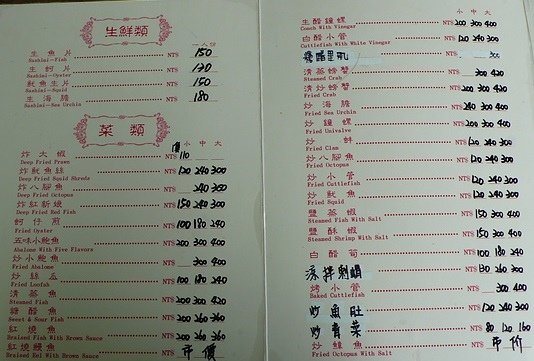 生鮮類
一人份
生魚片 NT$ 150
Sashimi-Fish
生蚵片 NT$ 120
Sashimi-Oyster
魷魚生片 NT$ 150
Sashimi-Squid
生海膽 NT$ 180
Sashimi-Sea Urchin
菜類
小 中 大
炸大蝦 NT$ 110
Deep Fried Prawn
炸魷魚絲 NT$ 120 240 300
Deep Fried Squid Shreds
炸八腳魚 NT$ 240 350
Deep Fried Octopus
炸紅新娘 NT$ 150 240 300
Deep Fried Red Fish
蚵仔煎 NT$ 100 180 240
Fried Oyster
五味小鮑魚 NT$ 200 300 400
Abalone With Five Flavors
炒小鮑魚 NT$ 300 400
Fried Abalone
炒絲瓜 NT$ 100 180 240
Fried Loofah
清蒸魚 NT$ 200 300 420
Steamed Fish
糖醋魚 NT$ 200 260 360
Sweet & Sour Fish
紅燒魚 NT$ 200 260 360
Braised Fish With Brown Sauce
紅燒鰻魚 NT$ 市價
Braised Eel With Brown Sauce
小 中 大
生醋鐘螺 NT$ 200 300 400
Conch With Vinegar
白醋小管 NT$ 120 240 300
Cuttlefish With White Vinegar
NT$ 300
清蒸螃蟹 NT$ 300 420
Steamed Crab
清炒螃蟹 NT$ 200 300 420
Fried Crab
炒海膽 NT$ 240 300 400
Fried Sea Urchin
炒鐘螺 NT$ 200 300 400
Fried Univalve
炒蚌 NT$ 120 240 300
Fried Clam
炒八腳魚 NT$ 120 240 300
Fried Octopus
炒小管 NT$ 120 240 300
Fried Cuttlefish
炒魷魚 NT$ 120 240 300
Fried Squid
鹽蒸蝦 NT$ 150 300 400
Steamed Fish With Salt
鹽酥蝦 NT$ 150 300 400
Steamed Shrimp With Salt
白醋筍 NT$ 100 180 240
涼拌刺蝟 NT$ 130 260 300
烤小管 NT$ 300 400
Baked Cuttlefish
炒魚肚 NT$ 120 240 300
炒青菜 NT$ 80 120 160
炒鱆魚 NT$ 市價
Fried Fish With Salt